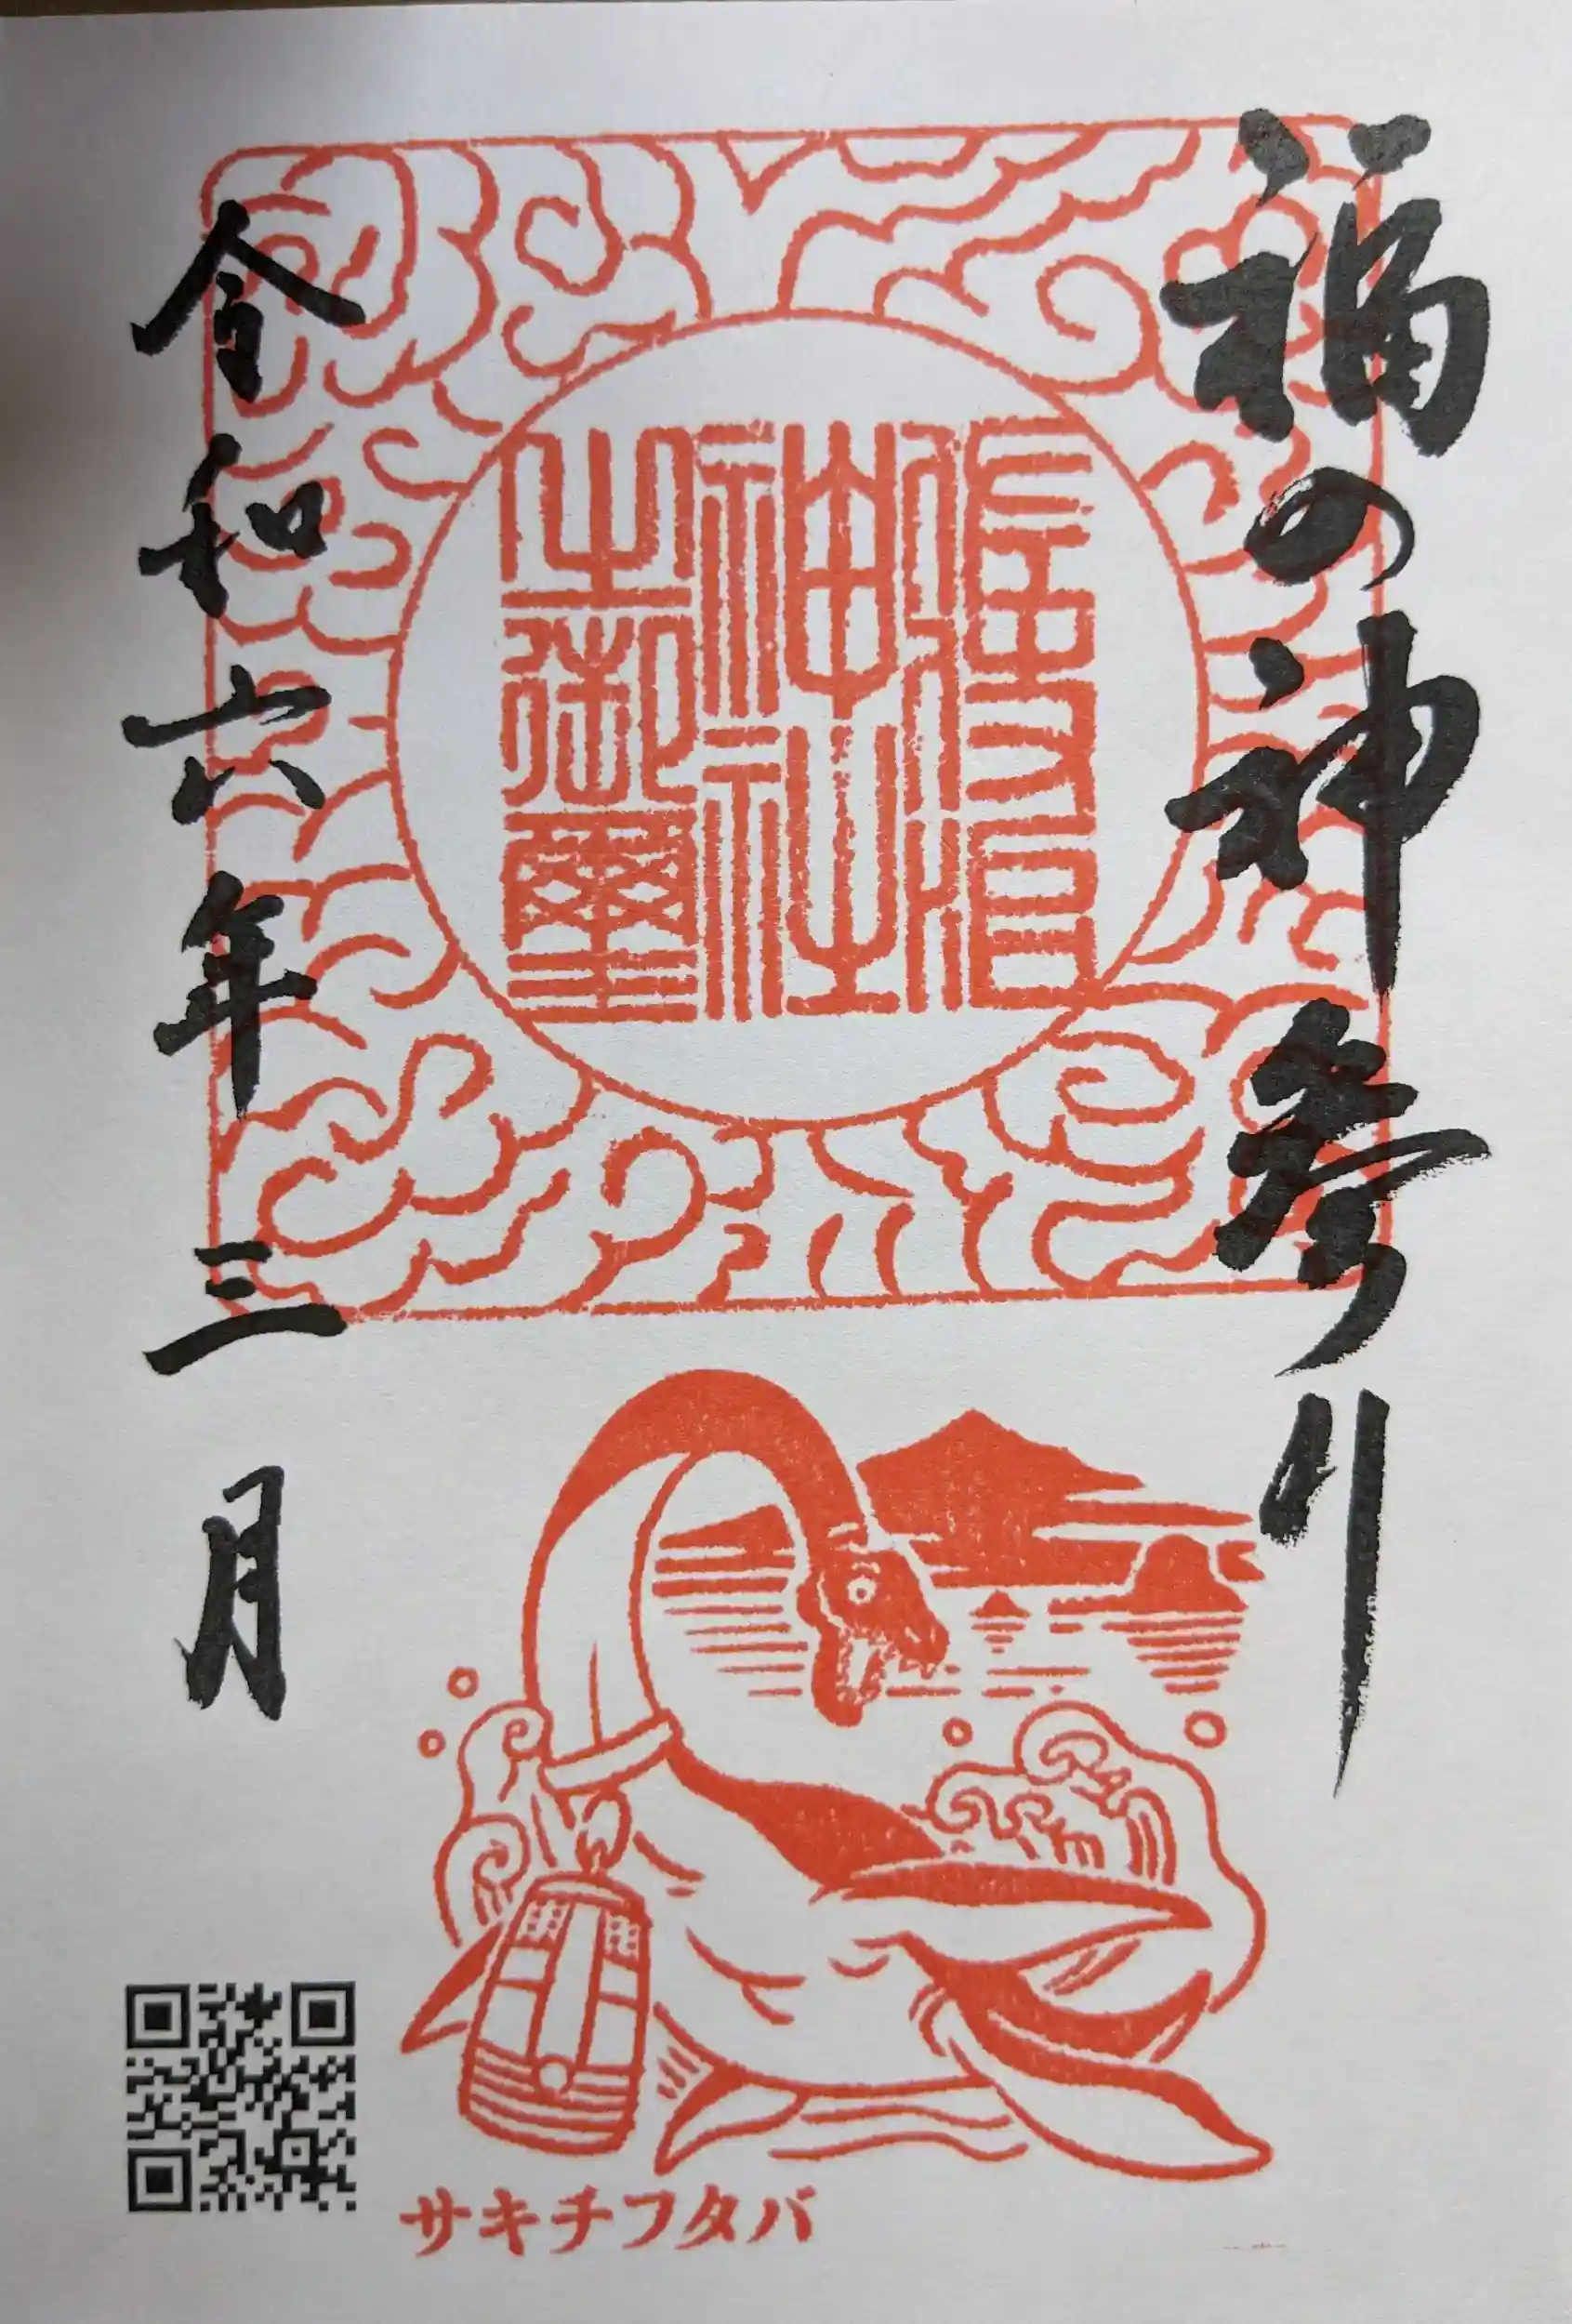 福の神参り
神社
之御璽
令和六年三月
サキチフタバ